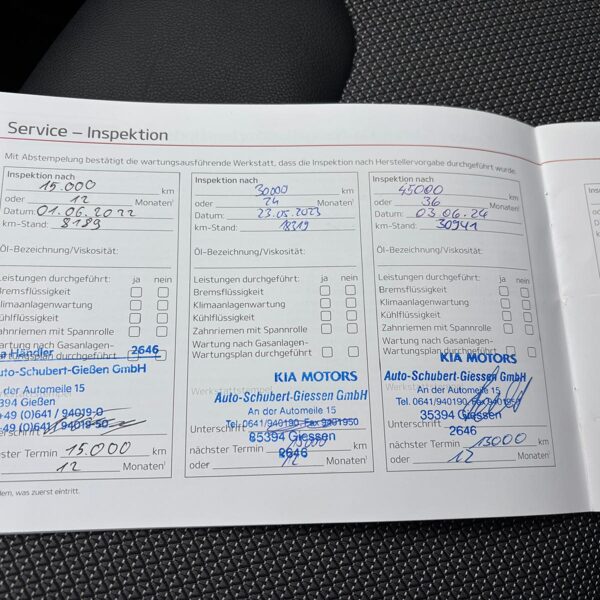 Service – Inspektion
Mit Abstempelung bestätigt die wartungsausführende Werkstatt, dass die Inspektion nach Herstellervorgabe durchgeführt wurde.
Inspektion nach
15.000 km
oder 12 Monaten¹
Datum: 01.06.2022
km-Stand: 8189
Öl-Bezeichnung/Viskosität:
Leistungen durchgeführt: ja nein
Bremsflüssigkeit
Klimaanlagenwartung
Kühlflüssigkeit
Zahnriemen mit Spannrolle
Wartung nach Gasanlagen-
Wartungsplan durchgeführt
a Händler 2646
uto-Schubert-Gießen GmbH
der Automeile 15
394 Gießen
+49 (0)641 / 94019-0
+49 (0)641 / 94019-50
Unterschrift
nächster Termin 15.000 km
oder 12 Monaten¹
Inspektion nach
30000 km
oder 24 Monaten¹
Datum: 23.05.2023
km-Stand: 18319
Öl-Bezeichnung/Viskosität:
Leistungen durchgeführt: ja nein
Bremsflüssigkeit
Klimaanlagenwartung
Kühlflüssigkeit
Zahnriemen mit Spannrolle
Wartung nach Gasanlagen-
Wartungsplan durchgeführt
KIA MOTORS
Auto-Schubert-Giessen GmbH
An der Automeile 15
Tel. 0641/940190, Fax 9401950
Unterschrift
35394 Giessen
2646
nächster Termin 15000 km
oder 12 Monaten¹
Inspektion nach
45000 km
oder 36 Monaten¹
Datum: 03.06.24
km-Stand: 30941
Öl-Bezeichnung/Viskosität:
Leistungen durchgeführt: ja nein
Bremsflüssigkeit
Klimaanlagenwartung
Kühlflüssigkeit
Zahnriemen mit Spannrolle
Wartung nach Gasanlagen-
Wartungsplan durchgeführt
KIA MOTORS
Auto-Schubert-Giessen GmbH
An der Automeile 15
Tel. 0641/940190, Fax 9401950
35394 Giessen
Unterschrift
2646
nächster Termin 15000 km
oder 12 Monaten¹
dem, was zuerst eintritt.